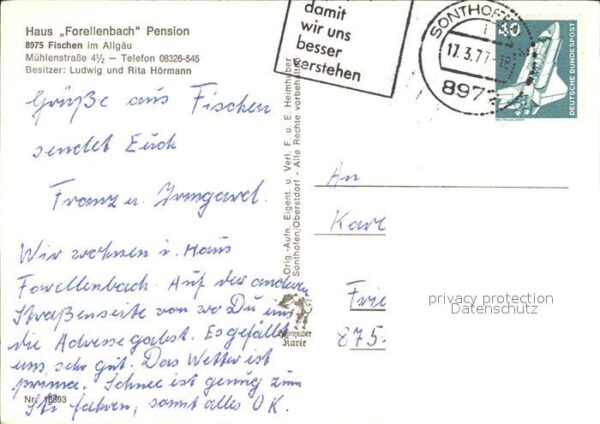 Haus „Forellenbach" Pension
8975 Fischen im Allgäu
Mühlenstraße 4½ – Telefon 08326-545
Besitzer: Ludwig und Rita Hörmann
Grüße aus Fischen
sendet Euch
Franz u. Irmgard.
Wir wohnen i. Haus
Forellenbach. Auf der anderen
Straßenseite von wo Du uns
die Adresse gabst. Es gefällt
uns sehr gut. Das Wetter ist
prima. Schnee ist genug zum
Ski fahren, sonst alles OK.
Nr.
Orig.-Aufn, Eigent. u. Verl. F. u. E. Heimhuber
Sonthofen, Oberstdorf - Alle Rechte vorbehalten
Heimhuber
Karte
damit
wir uns
besser
verstehen
SONTHOFEN
17.3.77
897
40
DEUTSCHE BUNDESPOST
An
Karl
Frie
875.
privacy protection
Datenschutz